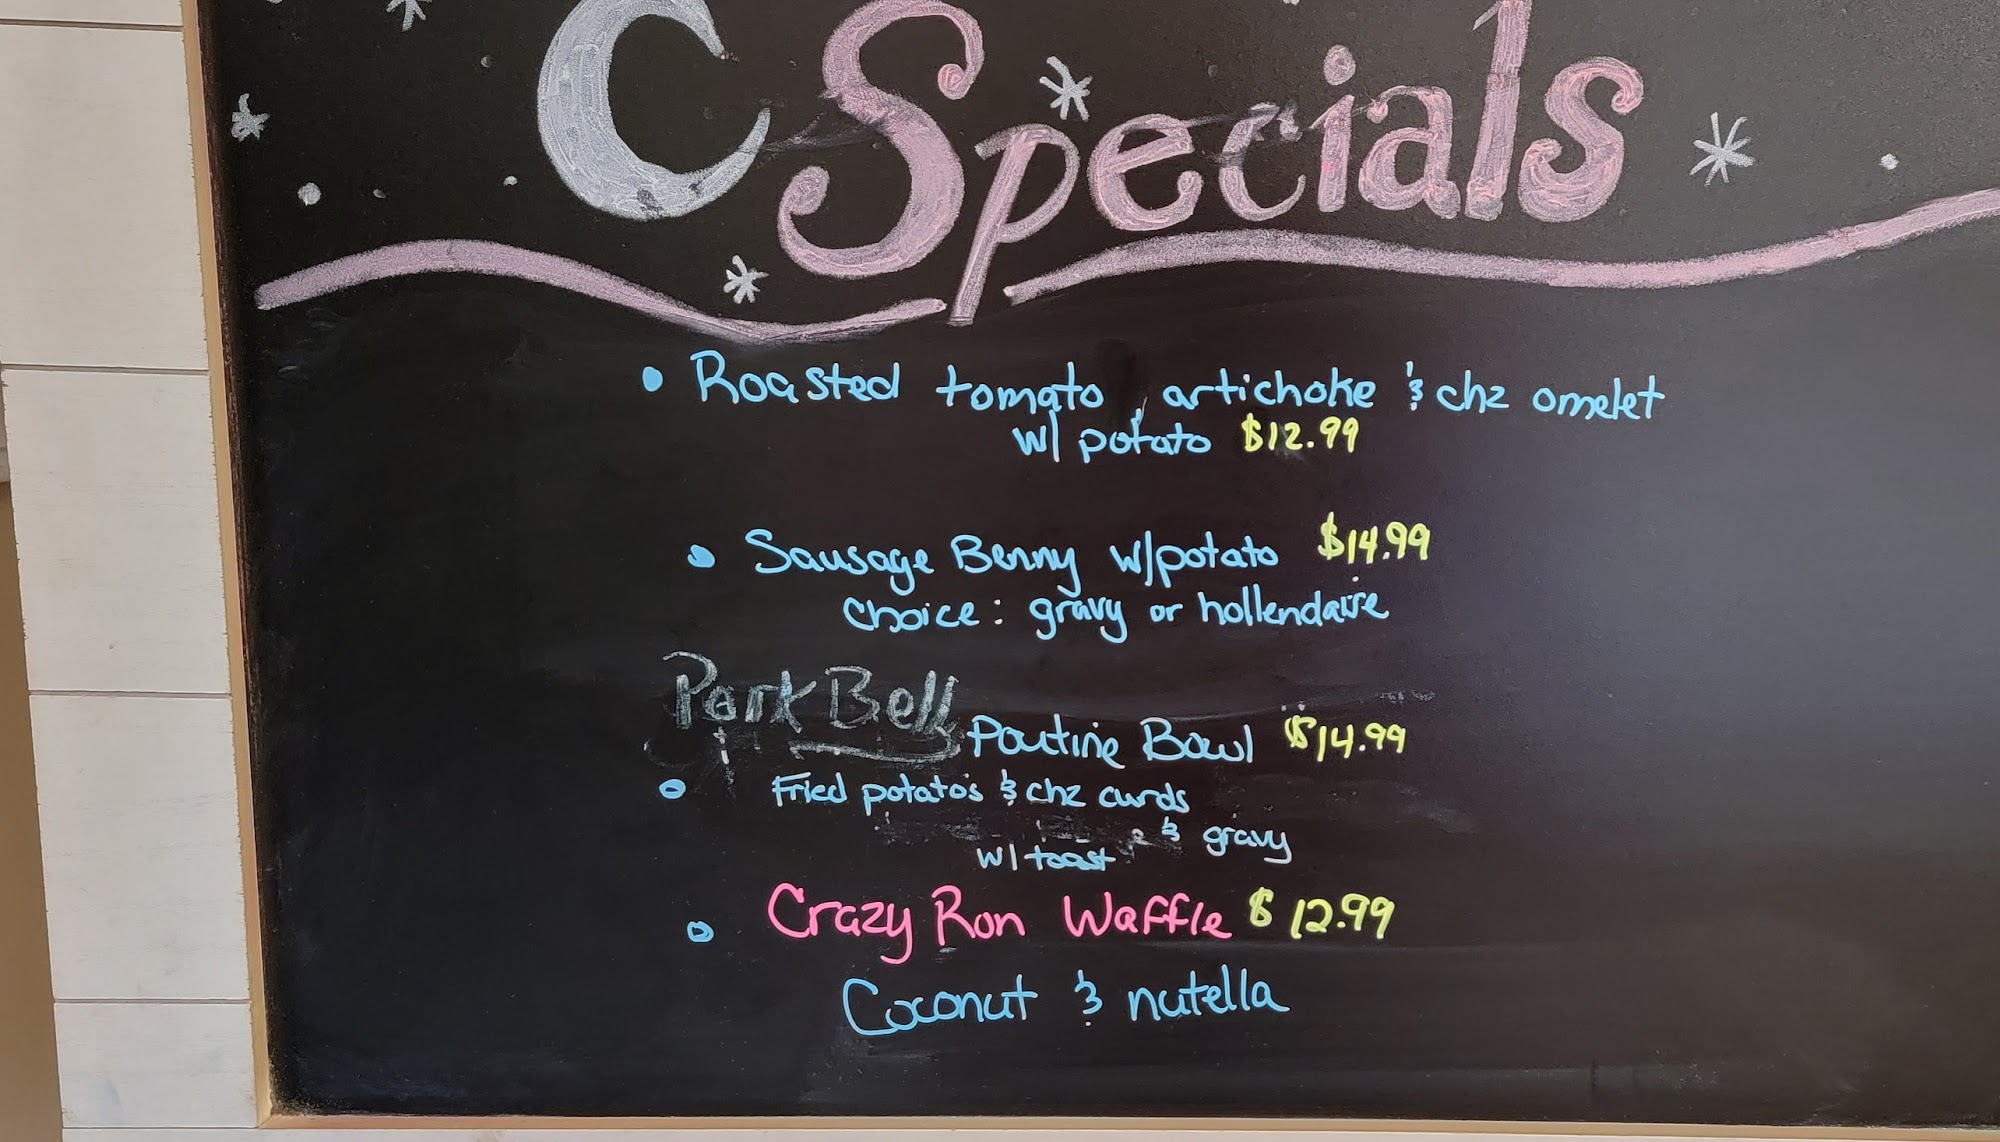 Specials
• Roasted tomato, artichoke & chz omelet
w/ potato $12.99
• Sausage Benny w/potato $14.99
choice: gravy or hollendaire
Pork Bell
Poutine Bowl $14.99
• Fried potato's & chz curds
& gravy
w/ toast
• Crazy Ron Waffle $12.99
Coconut & nutella